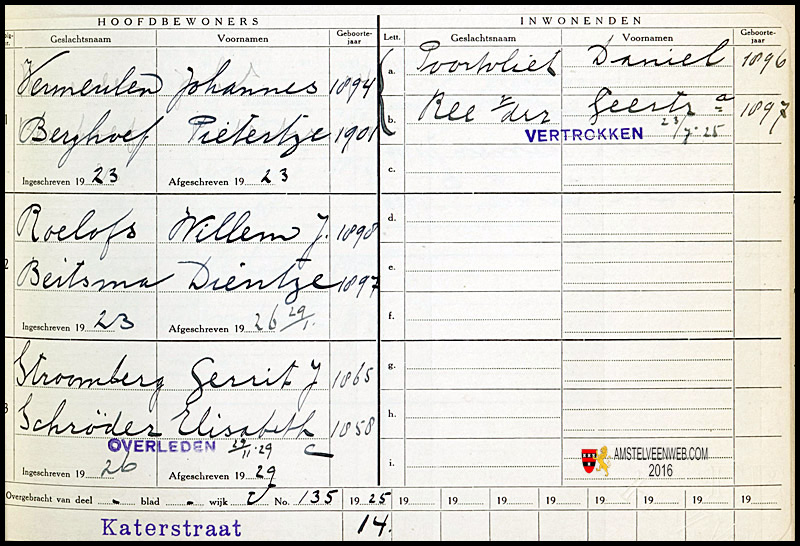 HOOFDBEWONERS
Geslachtsnaam Voornamen Geboorte-jaar
Vermeulen Johannes 1894
Berghoef Pietertze 1901
Ingeschreven 19 23 Afgeschreven 19 23
Roelofs Willem J. 1898
Beitsma Dientze 1897
Ingeschreven 19 23 Afgeschreven 19 26 29/1.
Stroomberg Gerrit J 1865
Schröder Elisabeth C 1858
OVERLEDEN 29/11-29
Ingeschreven 19 26 Afgeschreven 19 29
INWONENDEN
Lett. Geslachtsnaam Voornamen Geboorte-jaar
a. Poortvliet Daniel 1896
b. Ree v/der Geertr a 1897
VERTROKKEN 23/7-25
c.
d.
e.
f.
g.
h.
i.
AMSTELVEENWEB.COM
2016
Overgebracht van deel - blad - wijk V No. 135 19 25 19 19 19 19 19 19 19 19
Katerstraat 14.